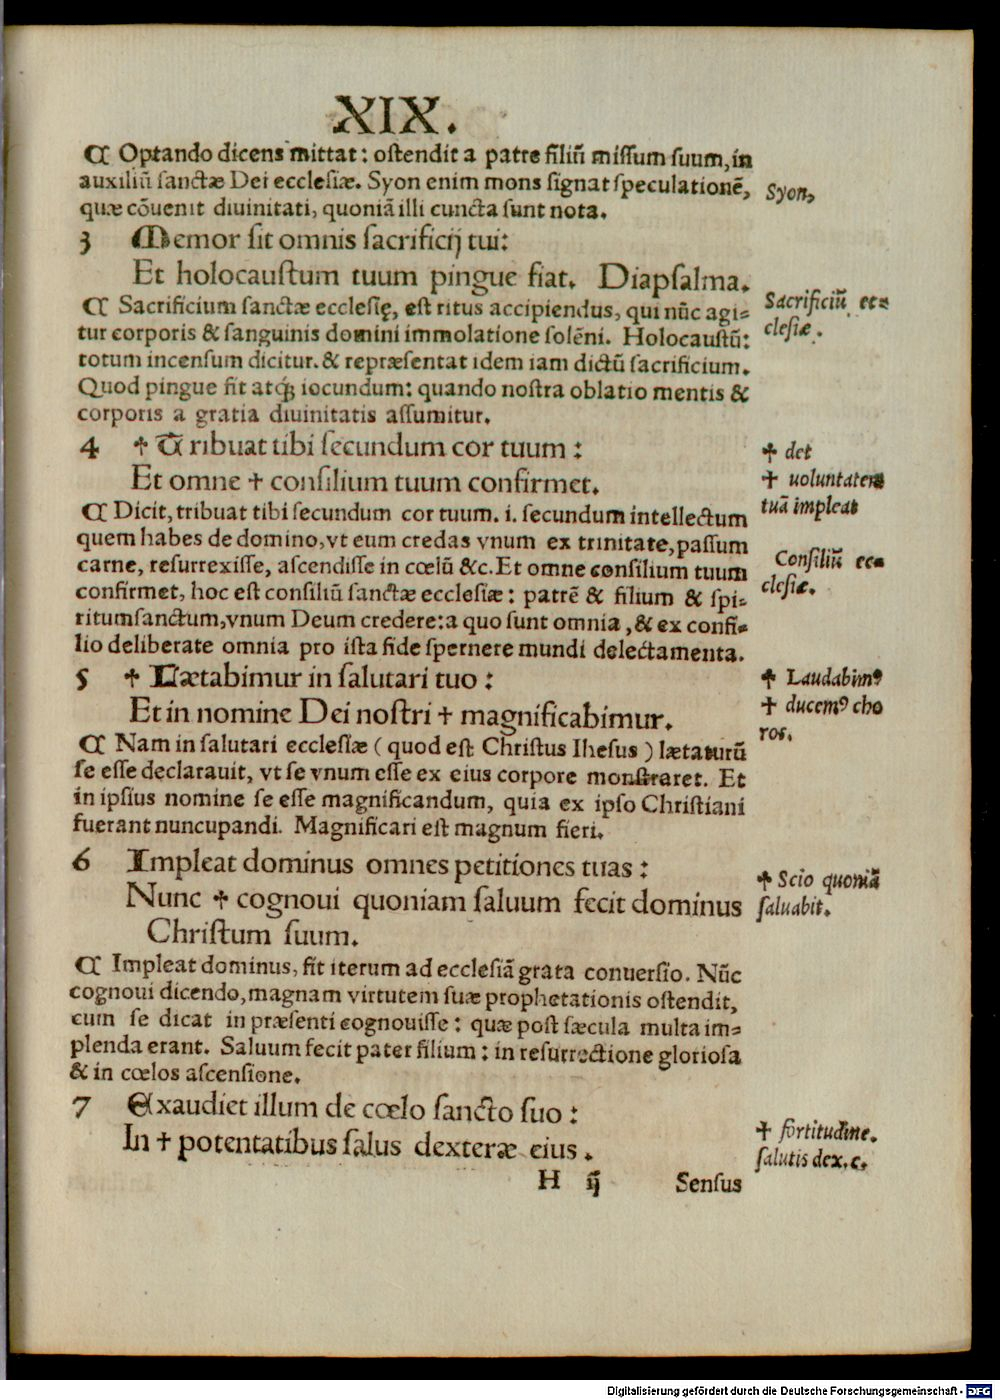 XIX.
¶ Optando dicens mittat: ostendit a patre filiū missum suum, in
auxiliū sanctæ Dei ecclesiæ. Syon enim mons signat speculationē,
quæ cōuenit diuinitati, quoniā illi cuncta sunt nota.
Syon,
3 Memor sit omnis sacrificij tui:
Et holocaustum tuum pingue fiat. Diapsalma.
¶ Sacrificium sanctæ ecclesię, est ritus accipiendus, qui nūc agi-
tur corporis & sanguinis domini immolatione solēni. Holocaustū:
totum incensum dicitur. & repræsentat idem iam dictū sacrificium.
Quod pingue fit atq; iocundum: quando nostra oblatio mentis &
corporis a gratia diuinitatis assumitur.
Sacrificiū ec-
clesiæ.
4 ✝ Tribuat tibi secundum cor tuum:
Et omne ✝ consilium tuum confirmet.
¶ Dicit, tribuat tibi secundum cor tuum. i. secundum intellectum
quem habes de domino, vt eum credas vnum ex trinitate, passum
carne, resurrexisse, ascendisse in cœlū &c. Et omne consilium tuum
confirmet, hoc est consiliū sanctæ ecclesiæ: patrē & filium & spi-
ritumsanctum, vnum Deum credere: a quo sunt omnia, & ex consi-
lio deliberate omnia pro ista fide spernere mundi delectamenta.
✝ det
✝ uoluntatem
tuā impleat
Consiliū ec-
clesiæ.
5 ✝ Lætabimur in salutari tuo:
Et in nomine Dei nostri ✝ magnificabimur.
¶ Nam in salutari ecclesiæ (quod est Christus Ihesus) lætaturū
se esse declarauit, vt se vnum esse ex eius corpore monstraret. Et
in ipsius nomine se esse magnificandum, quia ex ipso Christiani
fuerant nuncupandi. Magnificari est magnum fieri.
✝ Laudabimꝰ
✝ ducemꝰ cho
ros.
6 Impleat dominus omnes petitiones tuas:
Nunc ✝ cognoui quoniam saluum fecit dominus
Christum suum.
¶ Impleat dominus, fit iterum ad ecclesiā grata conuersio. Nūc
cognoui dicendo, magnam virtutem suæ prophetationis ostendit,
cum se dicat in præsenti cognouisse: quæ post sæcula multa im-
plenda erant. Saluum fecit pater filium: in resurrectione gloriosa
& in cœlos ascensione.
✝ Scio quoniā
saluabit.
7 Exaudiet illum de cœlo sancto suo:
In ✝ potentatibus salus dexteræ eius.
✝ fortitudine.
salutis dex. e.
H ij Sensus
Digitalisierung gefördert durch die Deutsche Forschungsgemeinschaft - DFG